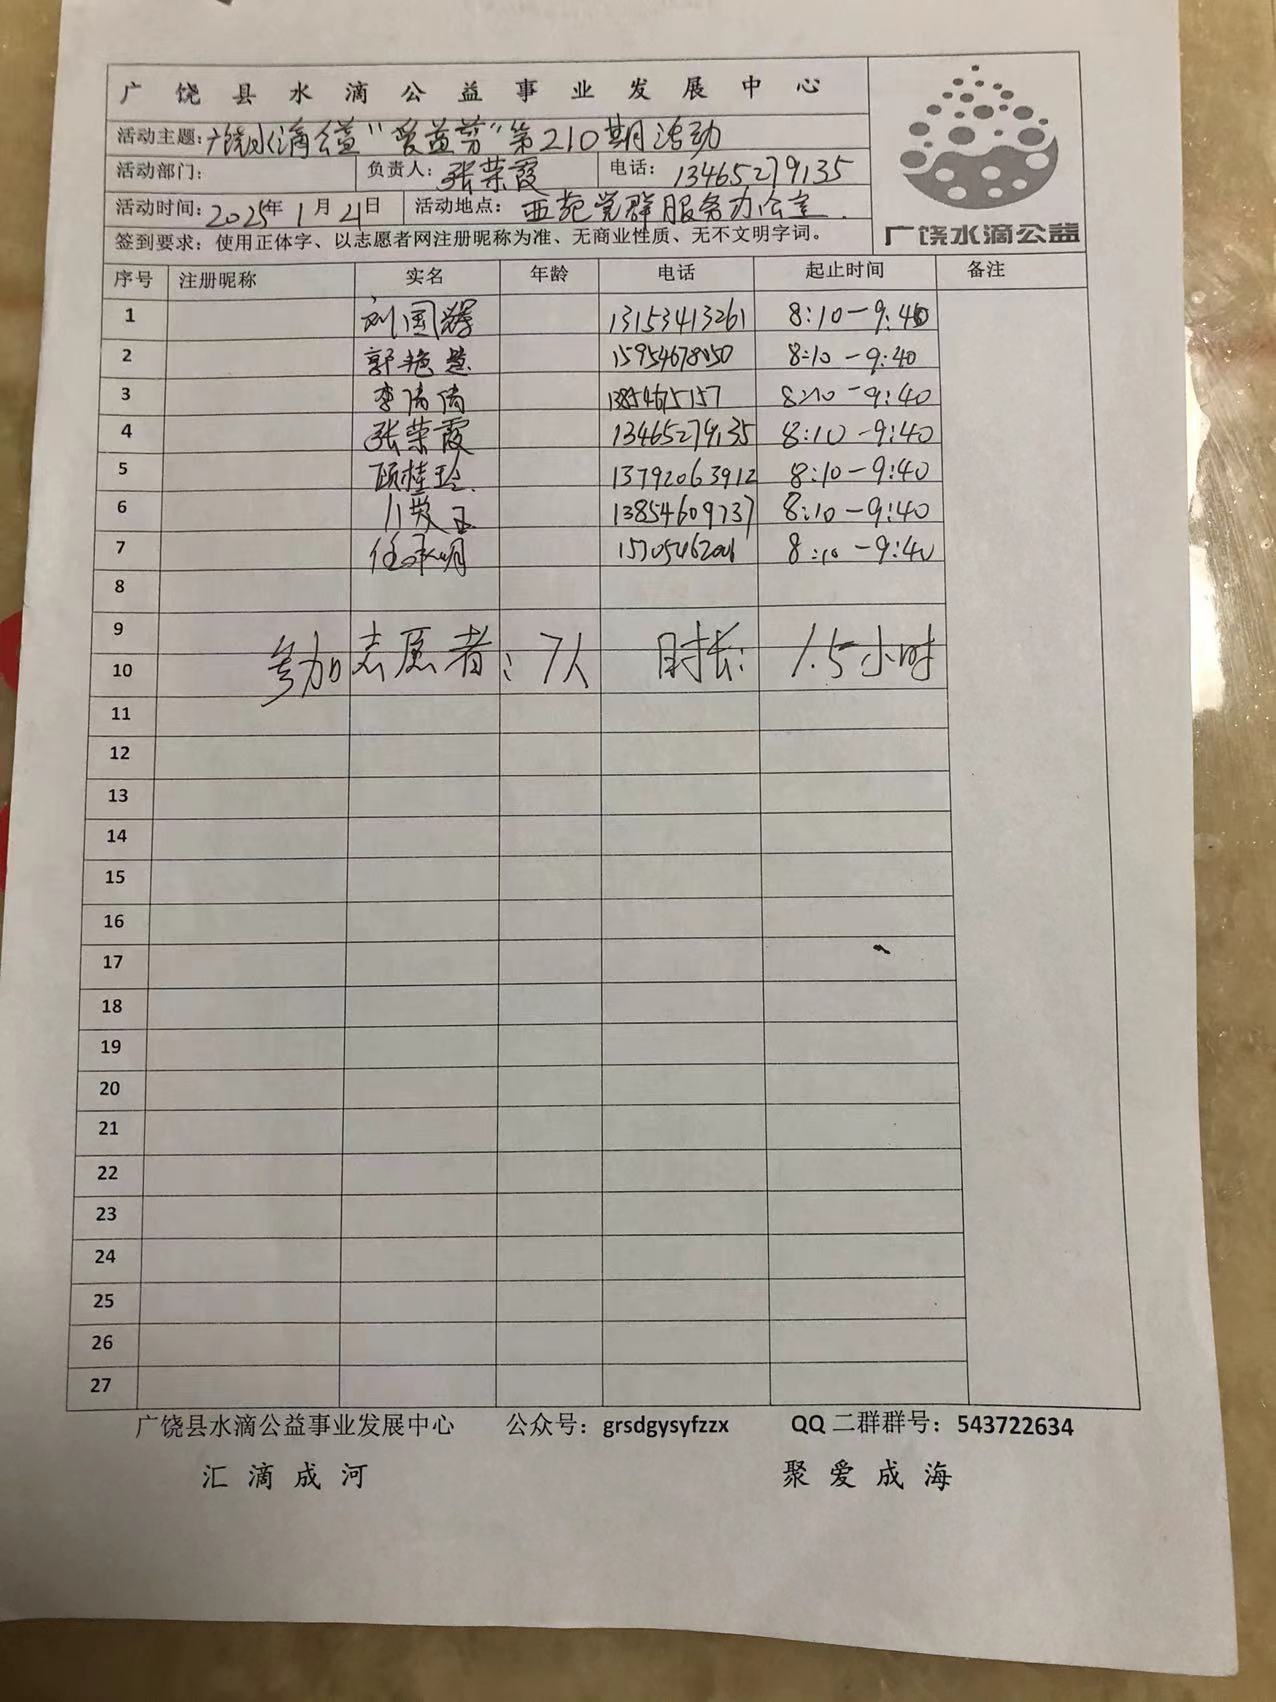 广饶县水滴公益事业发展中心
活动主题：广饶水滴公益“爱益剪”第210期活动
活动部门： 负责人：张荣霞 电话：13465279135
活动时间：2025年1月21日 活动地点：西苑党群服务办公室.
签到要求：使用正体字、以志愿者网注册昵称为准、无商业性质、无不文明字词。
广饶水滴公益
序号 注册昵称 实名 年龄 电话 起止时间 备注
1 刘国辉 13153413261 8:10-9:40
2 郭艳慧 15954678050 8:10-9:40
3 李倩倩 8:10-9:40
4 张荣霞 13465279135 8:10-9:40
5 顾桂玲 13792063912 8:10-9:40
6 13854609737 8:10-9:40
7 任承明 8:10-9:40
8
9
参加志愿者：7人 时长：1.5小时
10
11
12
13
14
15
16
17
18
19
20
21
22
23
24
25
26
27
广饶县水滴公益事业发展中心 公众号：grsdgysyfzzx QQ二群群号：543722634
汇滴成河 聚爱成海